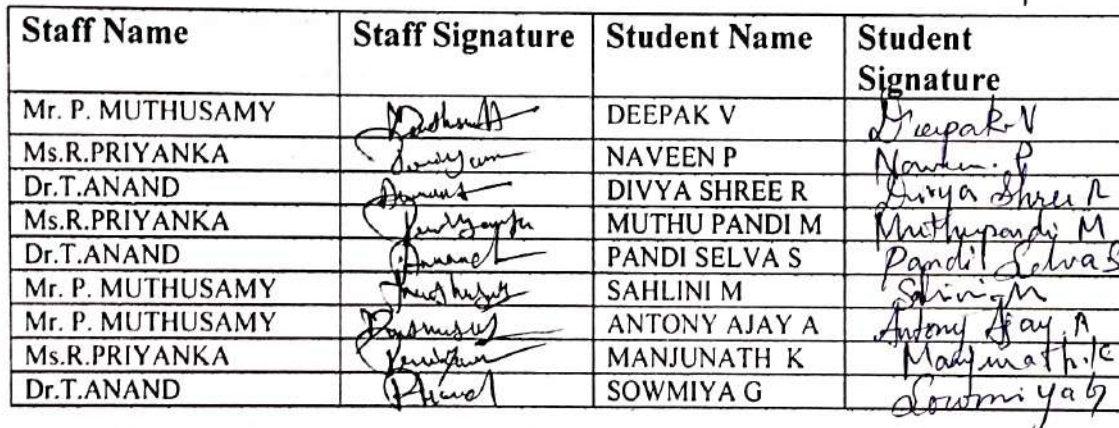 Staff Name Staff Signature Student Name Student Signature
Mr. P. MUTHUSAMY DEEPAK V Deepak V
Ms.R.PRIYANKA NAVEEN P Naveen. P
Dr.T.ANAND Anand DIVYA SHREE R Divya Shree R
Ms.R.PRIYANKA MUTHU PANDI M Muthupandi M
Dr.T.ANAND Anand PANDI SELVA S Pandi Selva S
Mr. P. MUTHUSAMY SAHLINI M
Mr. P. MUTHUSAMY ANTONY AJAY A Antony Ajay A
Ms.R.PRIYANKA MANJUNATH K Manjunath.K
Dr.T.ANAND Anand SOWMIYA G Sowmiya G